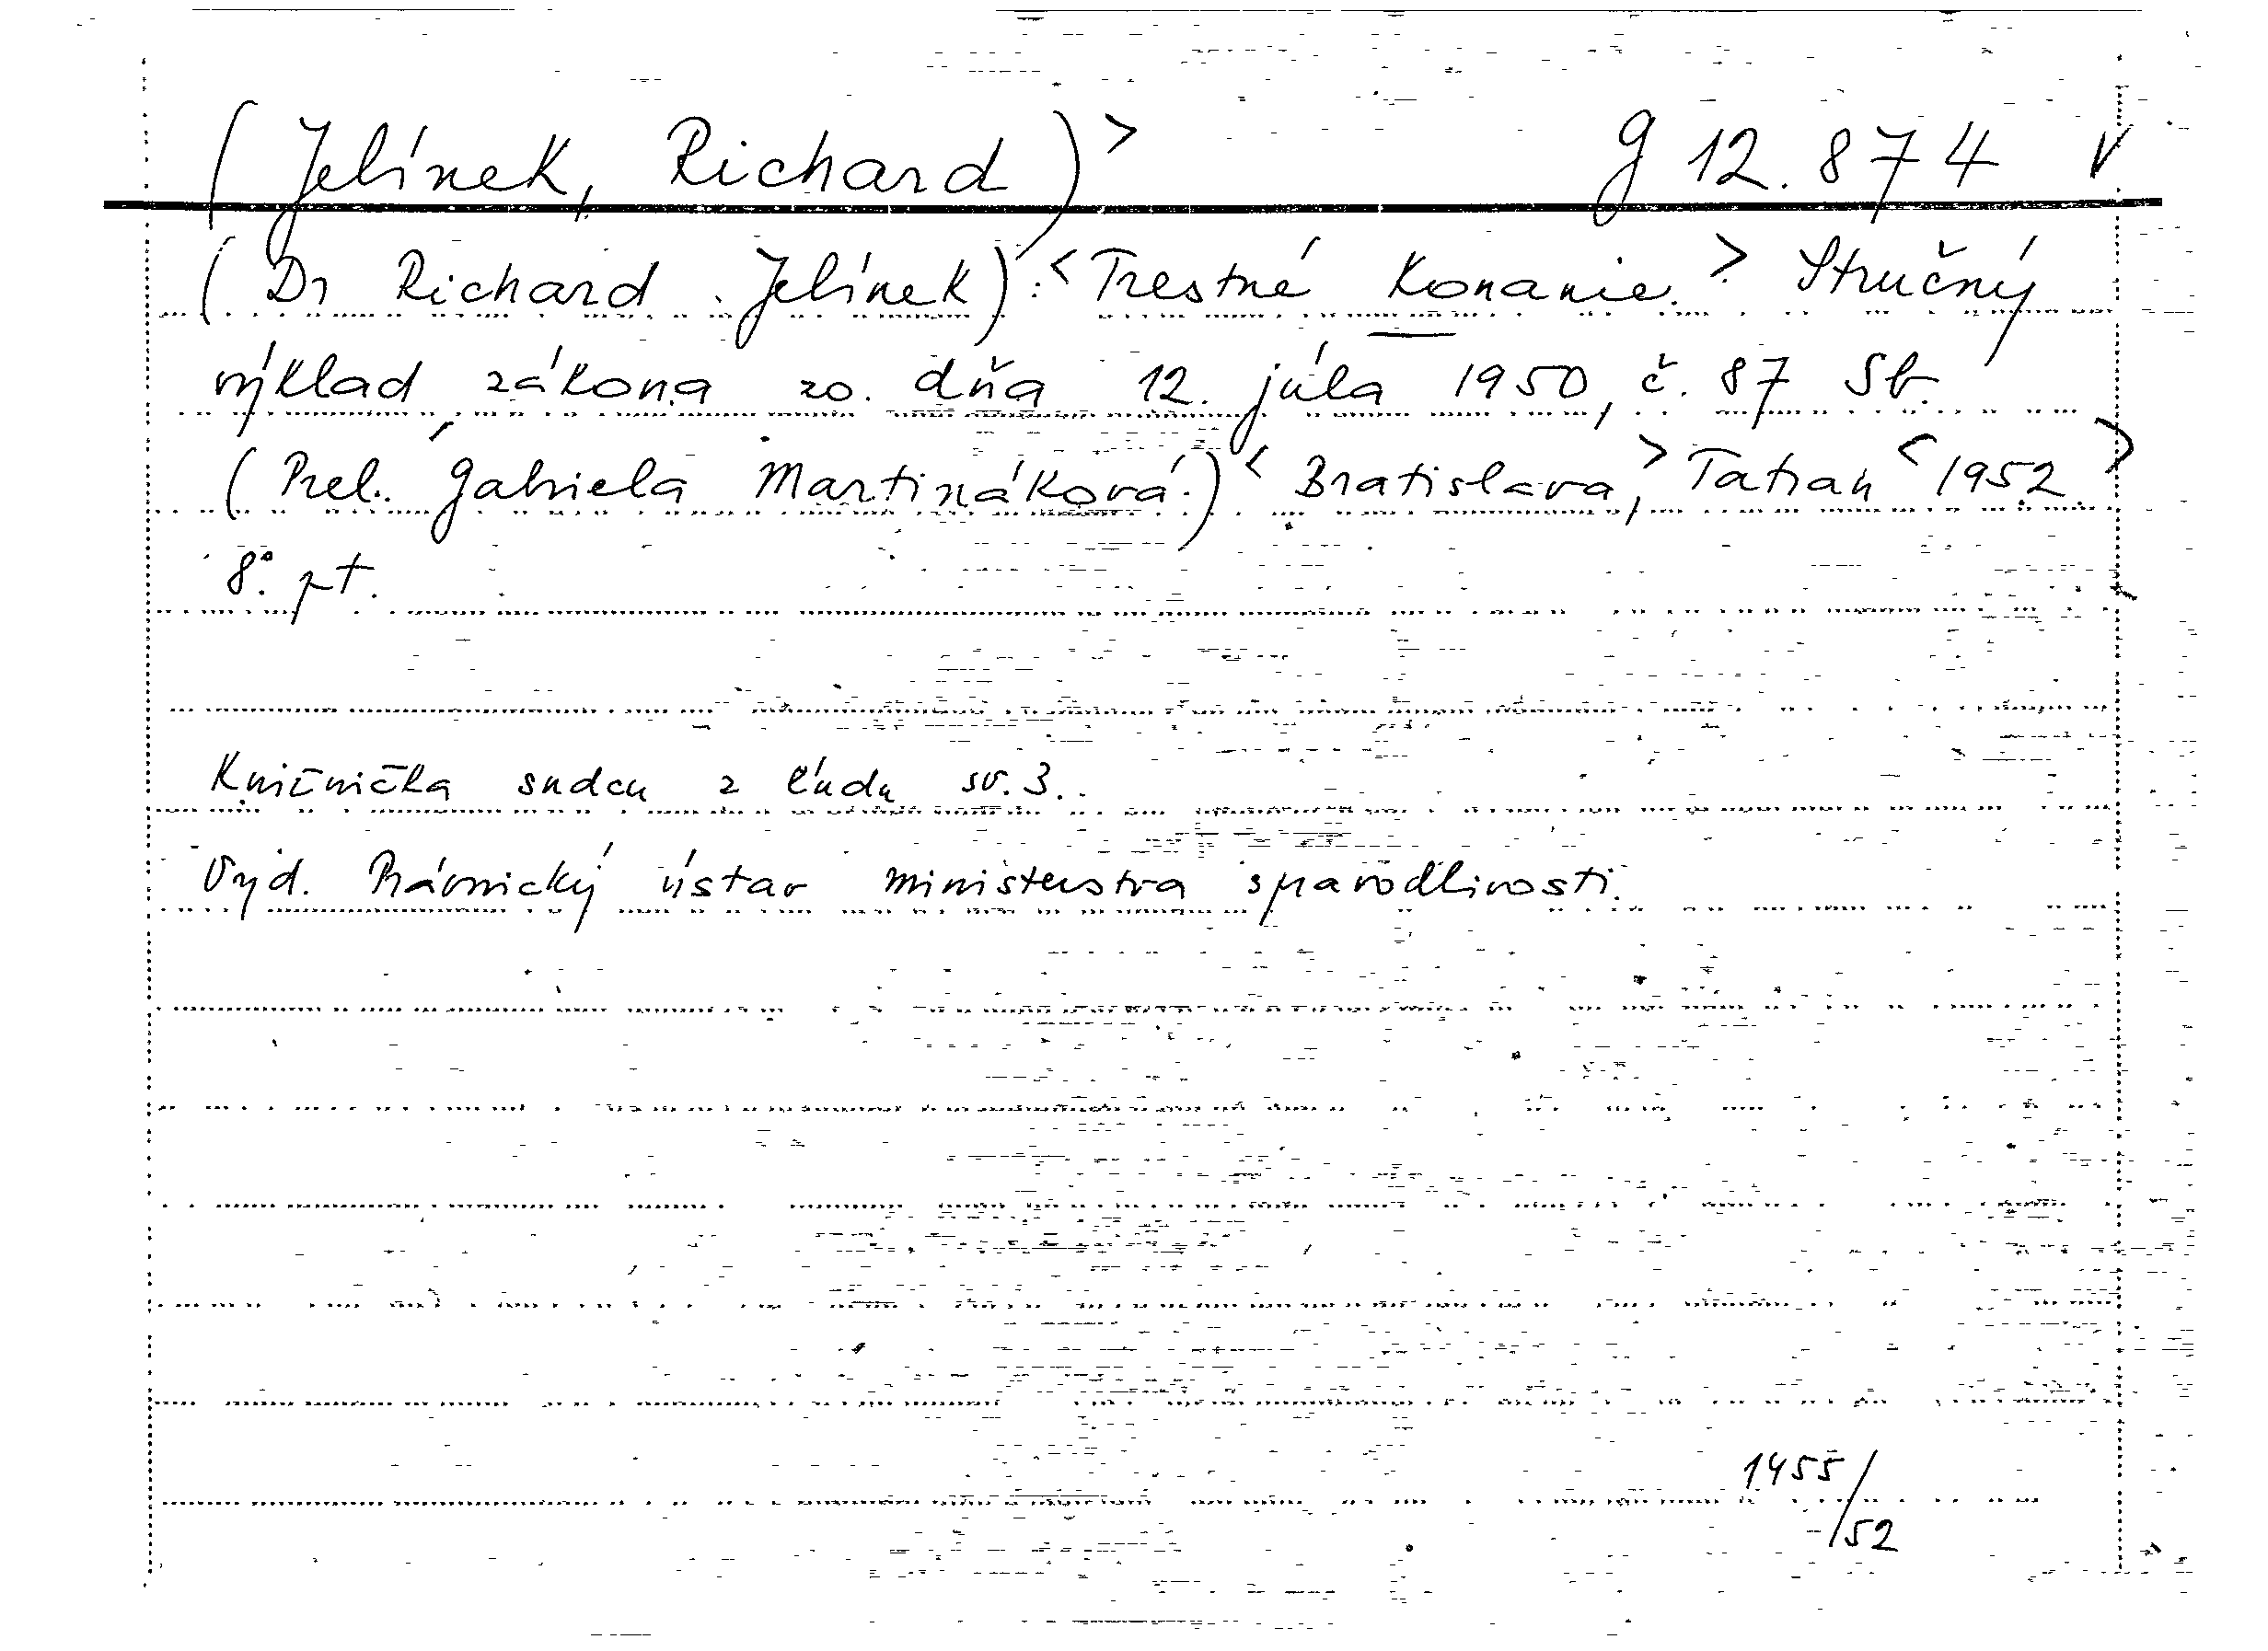 (Jelínek, Richard)> G 12.874 V
(Dr Richard Jelínek):<Trestné konanie.> Stručný
výklad zákona zo dňa 12. júla 1950, č. 87 Sb.
(Prel. Gabriela Martináková.)<Bratislava,> Tatran <1952.>
8°. pt.
Knižnička sudcu z ľudu sv. 3.
Vyd. Právnický ústav ministerstva spravodlivosti.
1455/
52